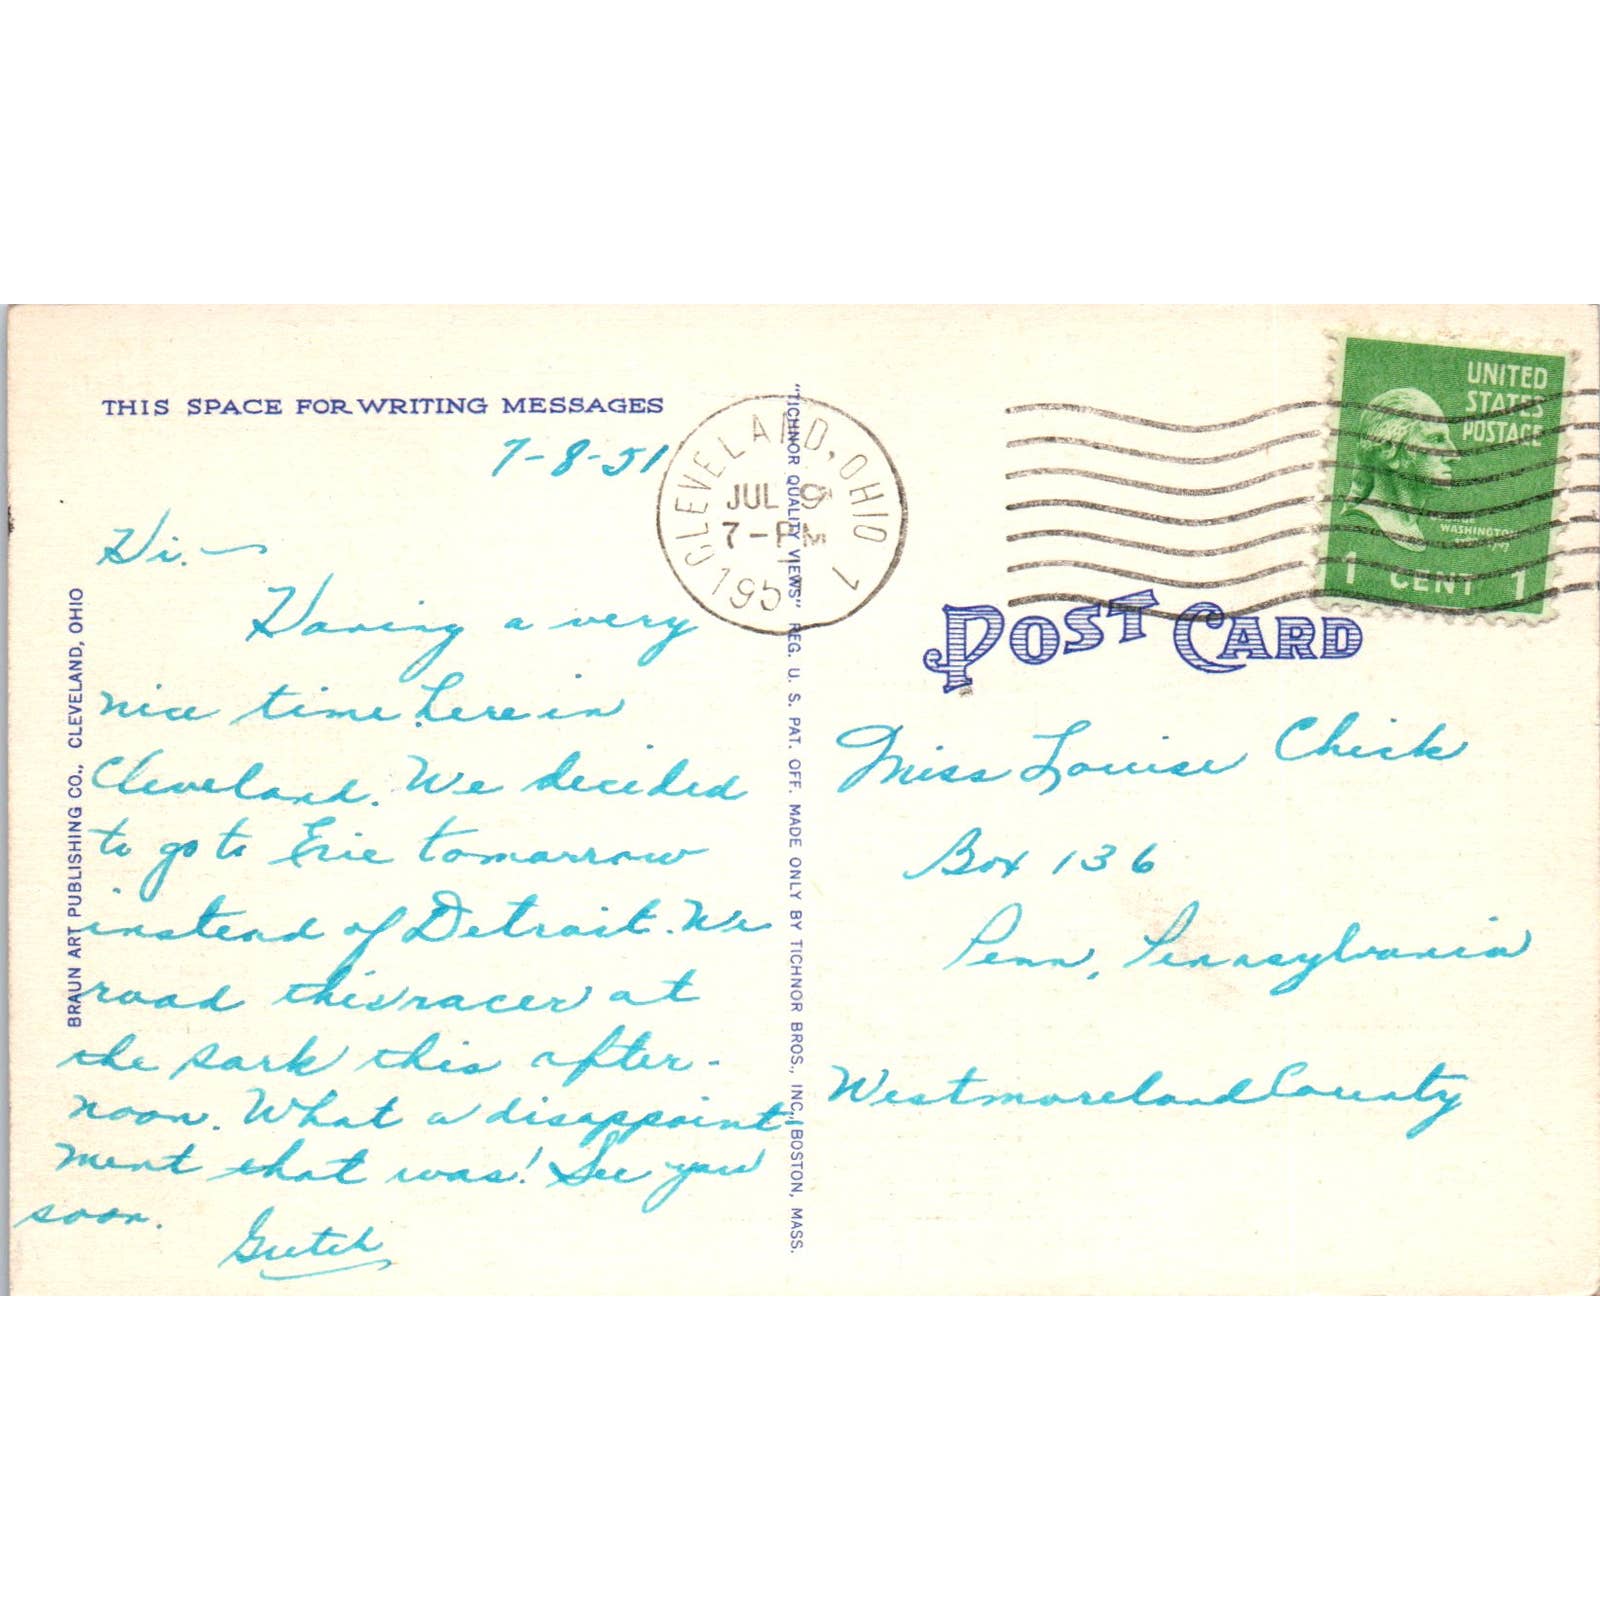 THIS SPACE FOR WRITING MESSAGES
7-8-51
Hi.—
Having a very
nice time here in
Cleveland. We decided
to go to Erie tomorrow
instead of Detroit. We
road this racer at
the park this after-
noon. What a disappoint-
ment that was! See you
soon.
Gutch
BRAUN ART PUBLISHING CO., CLEVELAND, OHIO
"TICHNOR QUALITY VIEWS" REG. U. S. PAT. OFF. MADE ONLY BY TICHNOR BROS., INC., BOSTON, MASS.
CLEVELAND, OHIO 1
JUL 9
7-PM
1951
UNITED
STATES
POSTAGE
GEORGE
WASHINGTON
1 CENT 1
POST CARD
Miss Louise Chick
Box 136
Penn, Pennsylvania
Westmoreland County